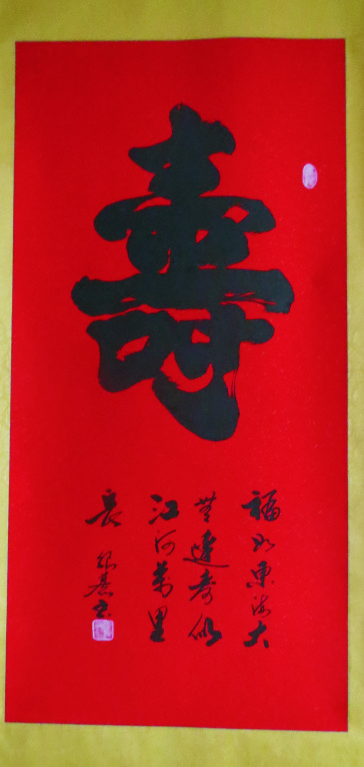 壽
福如東海大
無邊壽似
江河萬里
長
書